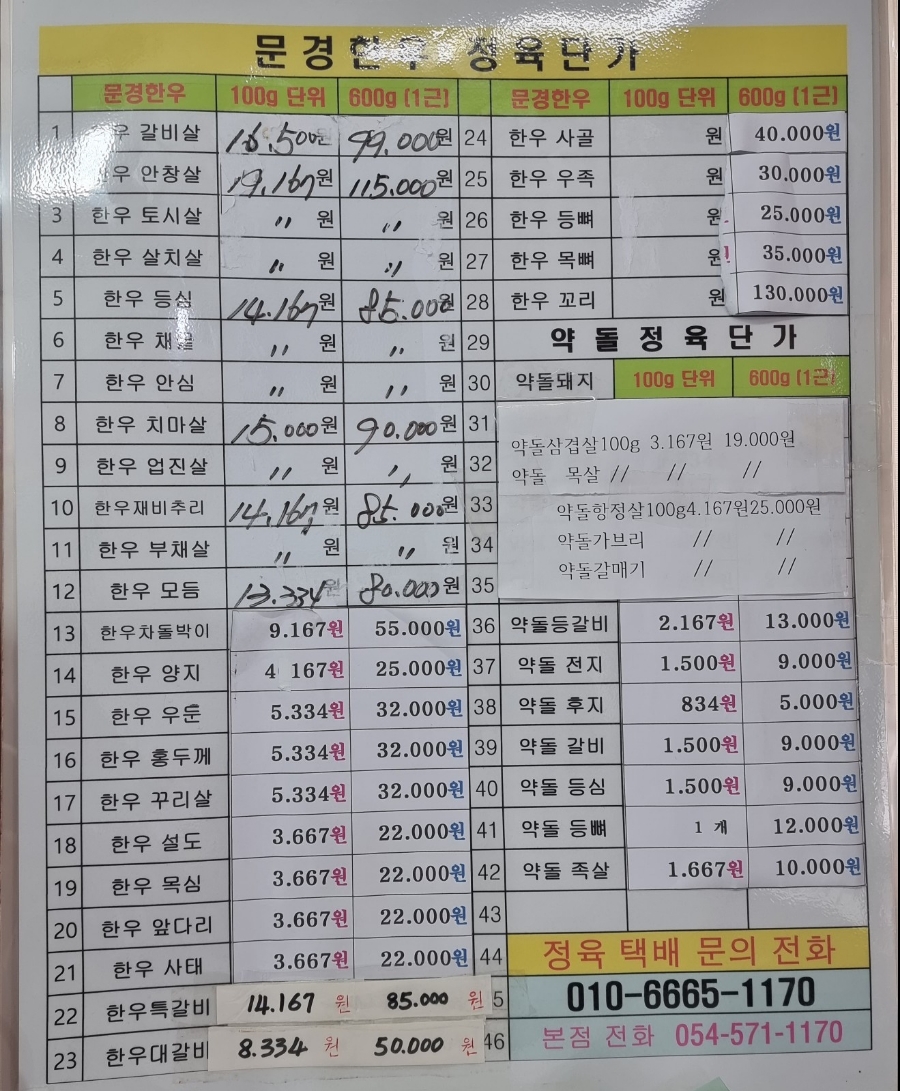 문경한우 정육단가
문경한우 100g 단위 600g (1근)
1 한우 갈비살 16.500원 99.000원
한우 안창살 19.167원 115.000원
3 한우 토시살 〃 원 〃 원
4 한우 살치살 〃 원 〃 원
5 한우 등심 14.167원 85.000원
6 한우 채끝 〃 원 〃 원
7 한우 안심 〃 원 〃 원
8 한우 치마살 15.000원 90.000원
9 한우 업진살 〃 원 〃 원
10 한우재비추리 14.167원 85.000원
11 한우 부채살 〃 원 〃 원
12 한우 모듬 13.334원 80.000원
13 한우차돌박이 9.167원 55.000원
14 한우 양지 4 167원 25.000원
15 한우 우둔 5.334원 32.000원
16 한우 홍두깨 5.334원 32.000원
17 한우 꾸리살 5.334원 32.000원
18 한우 설도 3.667원 22.000원
19 한우 목심 3.667원 22.000원
20 한우 앞다리 3.667원 22.000원
21 한우 사태 3.667원 22.000원
22 한우특갈비 14.167 원 85.000 원
23 한우대갈비 8.334 원 50.000 원
문경한우 100g 단위 600g (1근)
24 한우 사골 원 40.000원
25 한우 우족 원 30.000원
26 한우 등뼈 원 25.000원
27 한우 목뼈 원 35.000원
28 한우 꼬리 원 130.000원
29 약 돌 정 육 단 가
30 약돌돼지 100g 단위 600g (1근)
31 약돌삼겹살100g 3.167원 19.000원
32 약돌 목살 // // //
33 약돌항정살100g4.167원25.000원
34 약돌가브리 // //
35 약돌갈매기 // //
36 약돌등갈비 2.167원 13.000원
37 약돌 전지 1.500원 9.000원
38 약돌 후지 834원 5.000원
39 약돌 갈비 1.500원 9.000원
40 약돌 등심 1.500원 9.000원
41 약돌 등뼈 1 개 12.000원
42 약돌 족살 1.667원 10.000원
43
44 정육 택배 문의 전화
5 010-6665-1170
46 본점 전화 054-571-1170